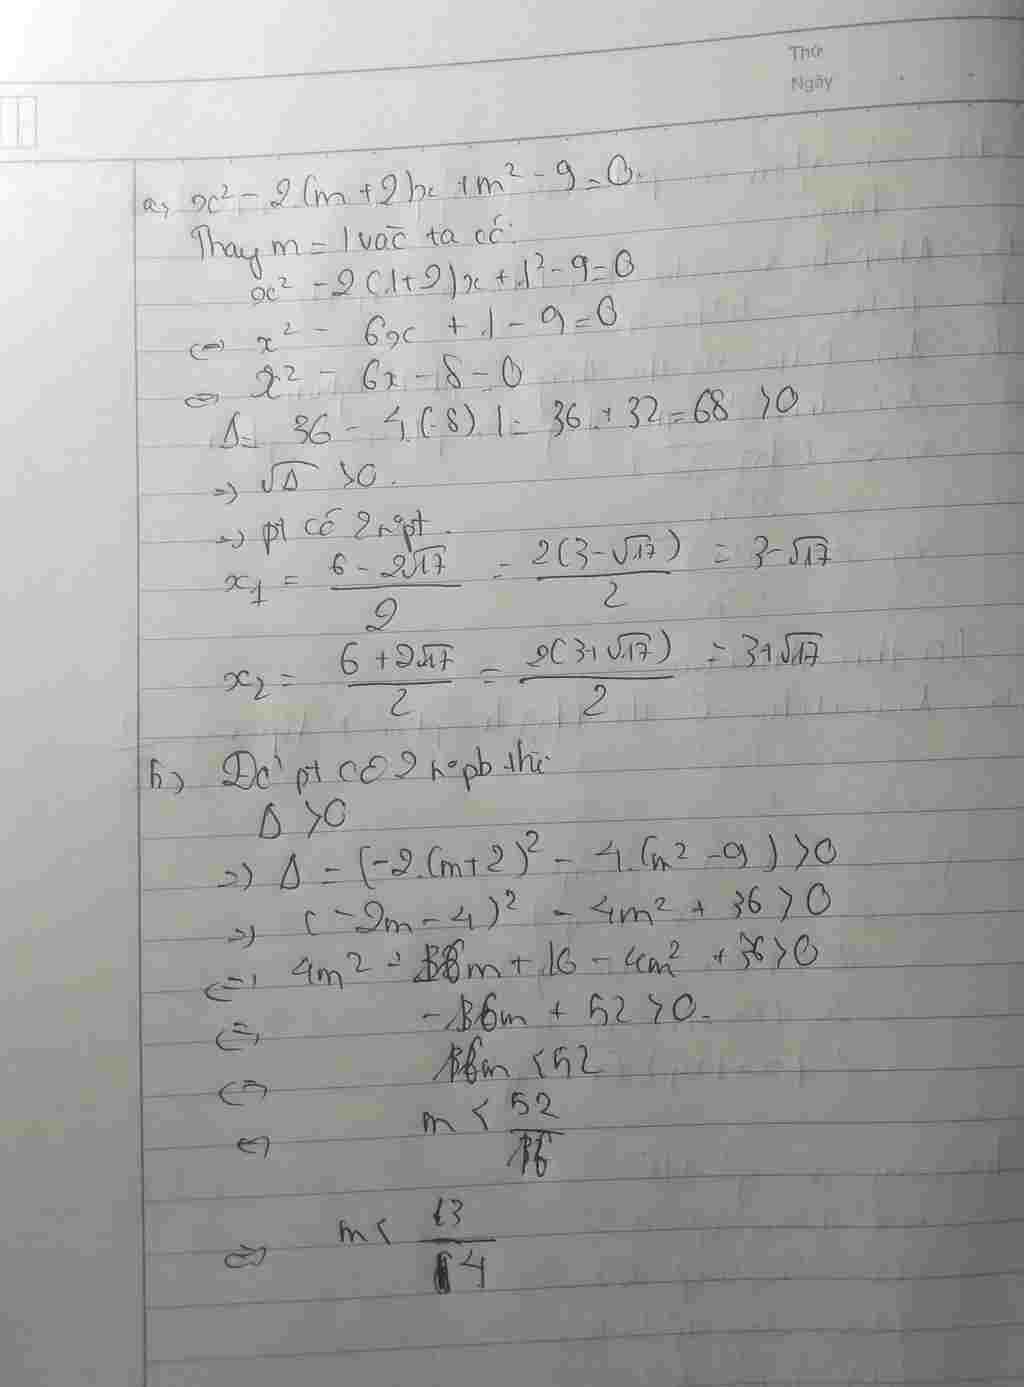 Thứ
Ngày
a, x² - 2(m+2)x + m² - 9 = 0.
Thay m = 1 vào ta có:
x² - 2(1+2)x + 1² - 9 = 0
⇔ x² - 6x + 1 - 9 = 0
⇔ x² - 6x - 8 = 0
Δ = 36 - 4.(-8).1 = 36 + 32 = 68 > 0
⇒ √Δ > 0.
⇒ pt có 2 n°pt.
x₁ = (6 - 2√17)/2 = 2(3-√17)/2 = 3-√17
x₂ = (6 + 2√17)/2 = 2(3+√17)/2 = 3+√17
b, Để pt có 2 n°pb thì
Δ > 0
⇒ Δ = (-2.(m+2)² - 4.(m² - 9) > 0
⇒ (-2m - 4)² - 4m² + 36 > 0
⇔ 4m² - 16m + 16 - 4m² + 36 > 0
⇔ -16m + 52 > 0.
⇔ 16m < 52
⇔ m < 52/16
⇔ m < 13/4